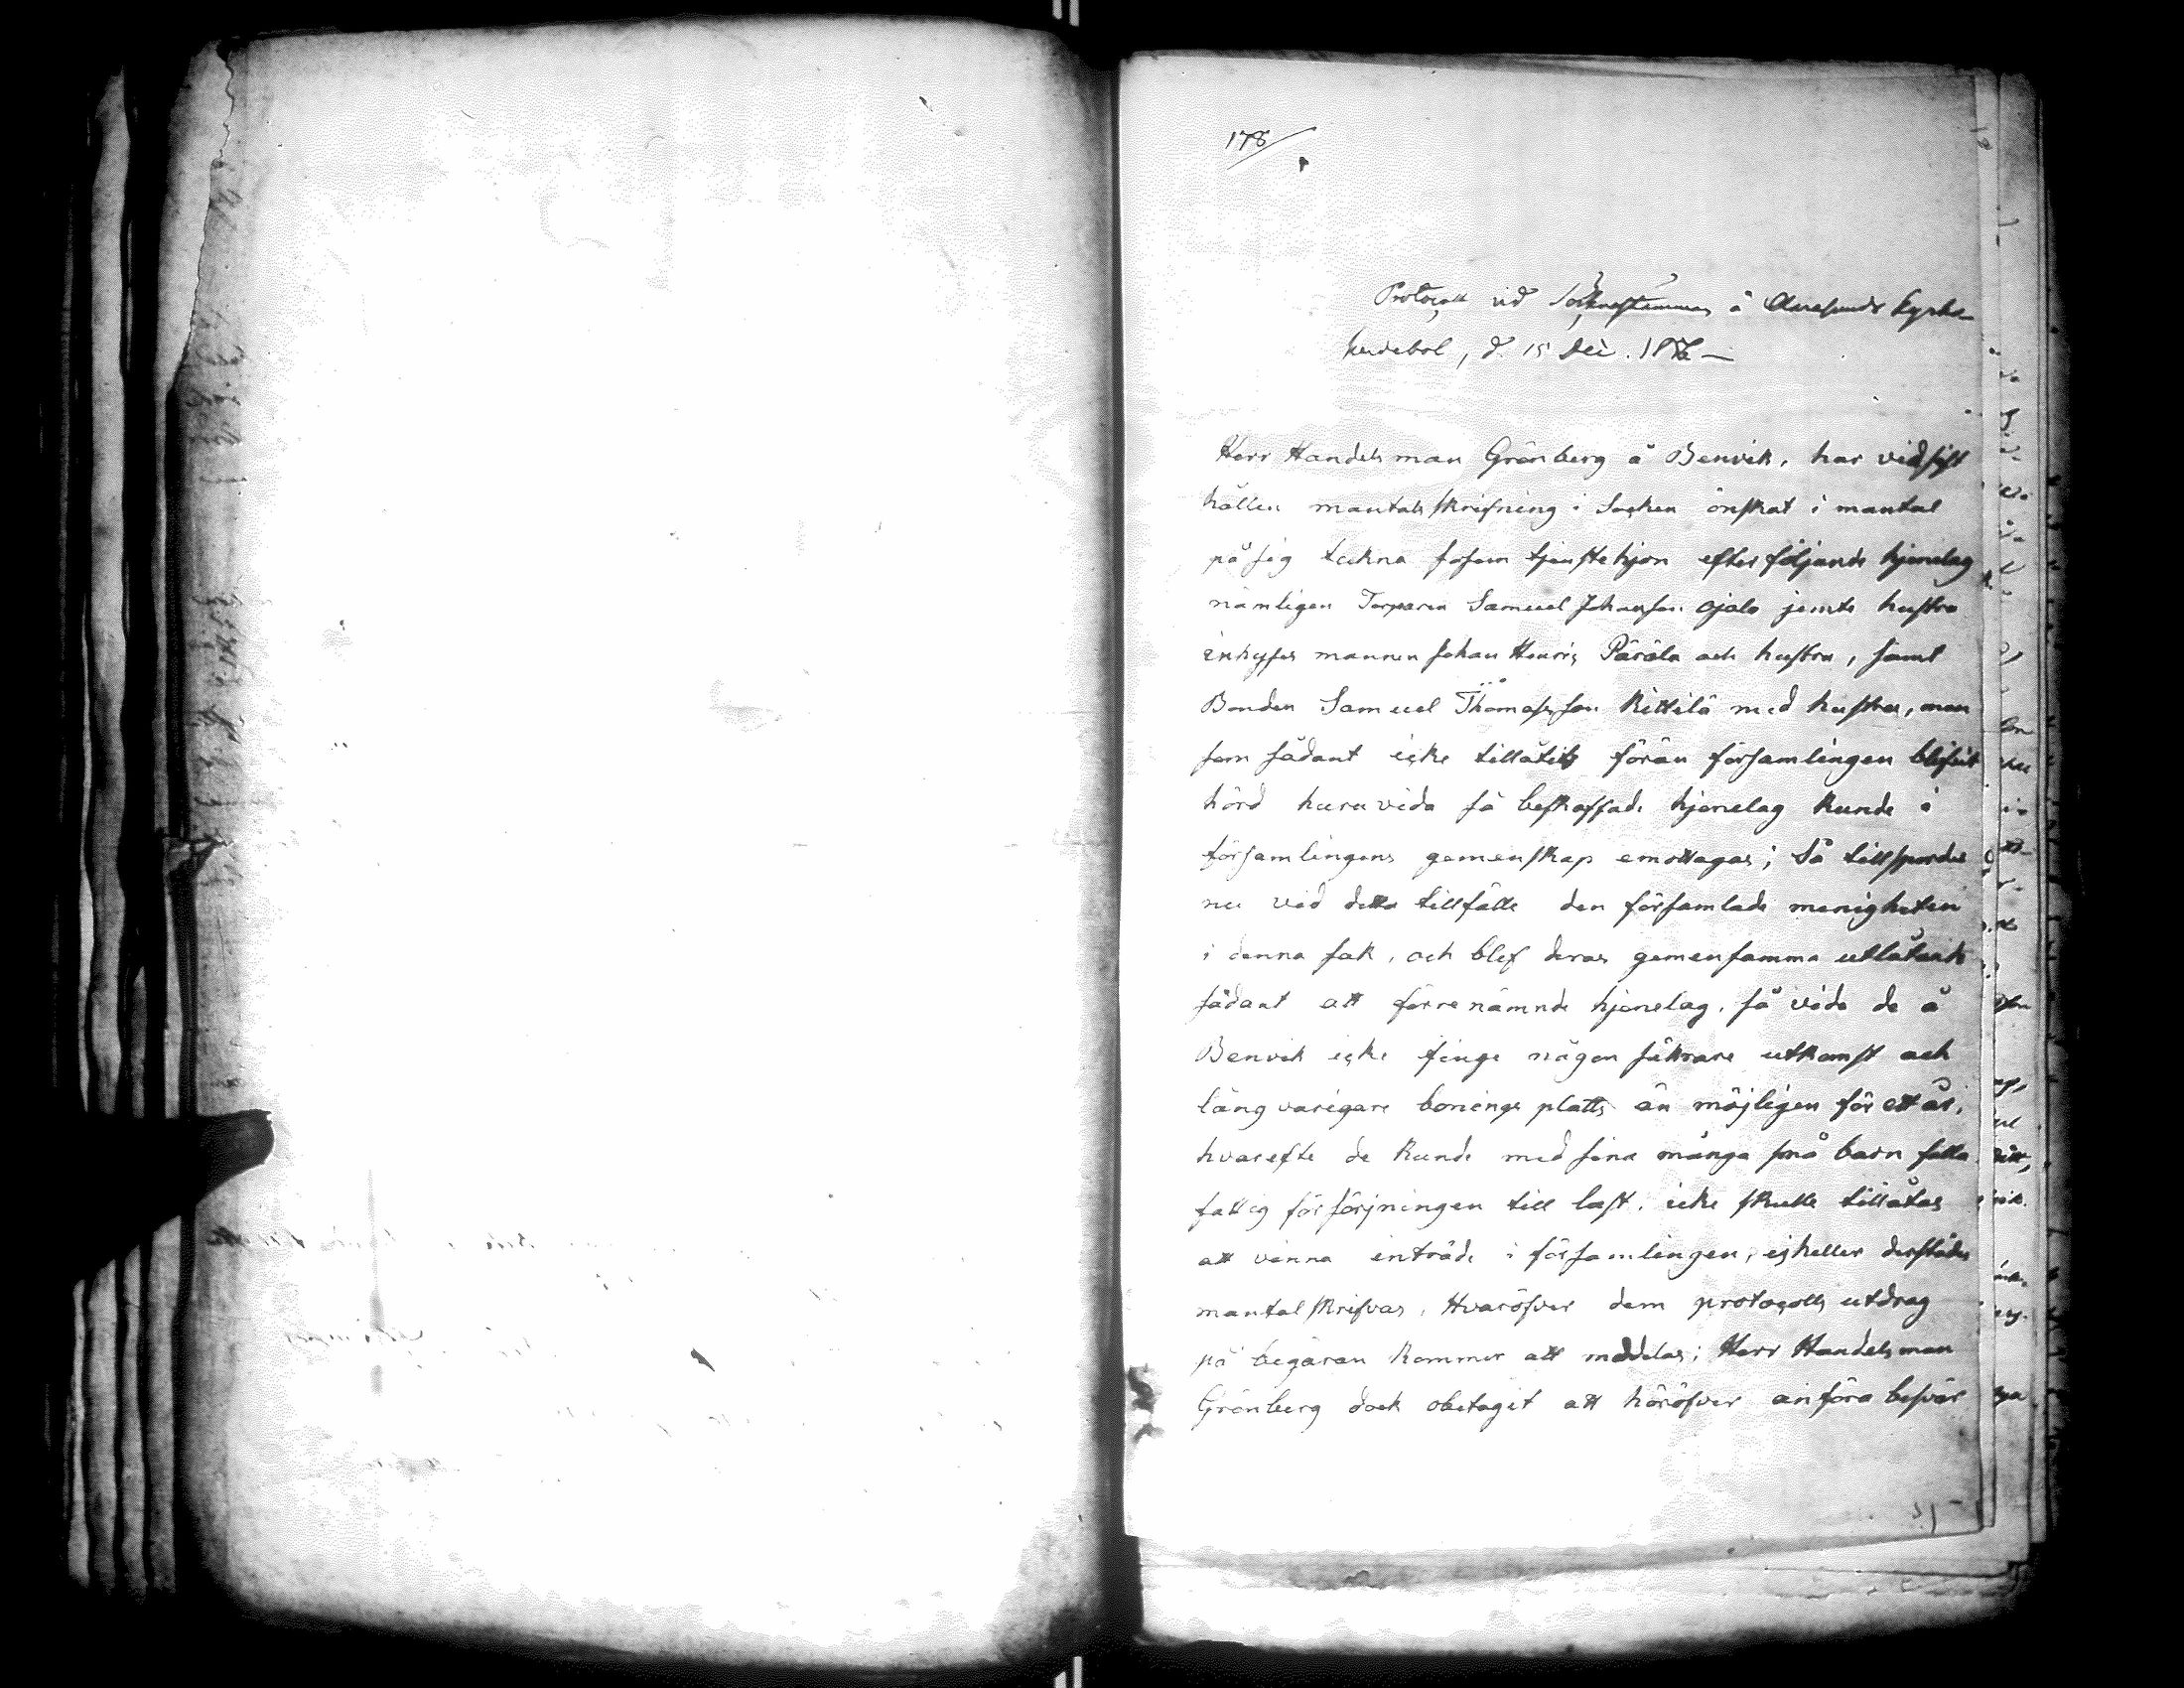 178
Protocoll vid Sockenstämman å
herdebol, d. 15 Dec.
Herr Handelsman Grönberg å Benvik, har vid sist
hållen mantalsskrifning i Socken önskat i mantal
på sig tekna sosom tjenstehjon efterföljande hjonelag
nämligen Torparen Samuel Johansson Ojala jemte hustro
inhyses mannen Johan Henric Päräla och hustru, samt
Bonden Samuel Thomasson Kittilä med hustru, men
som sådant icke tillåtits förän församlingen blifvit
hörd huruvida så beskaffade hjonelag kunde i
församlingens gemenskap emottagas; Så tillspordes
nu vid detta tillfälle den församlade menigheten
i denna sak, och blef deras gemensamma utlåtande
sådant att förrenämnde hjonelag, så vida de å
Benvik icke finge någon säkrare utkomst och
långvarigare bonings platts än möjligen för ett år,
hvarefte de kunde med sina många små barn falla
fattig försörjningen till last, icke skulle tillåtas
att vinna inträde i församlingen, ejheller derstädes
mantalskrifvas, Hvaröfver dem protocolls utdrag
på begäran kommer att meddelas; Herr Handelsman
Grönberg dock obetagit att häröfver anföra besvär